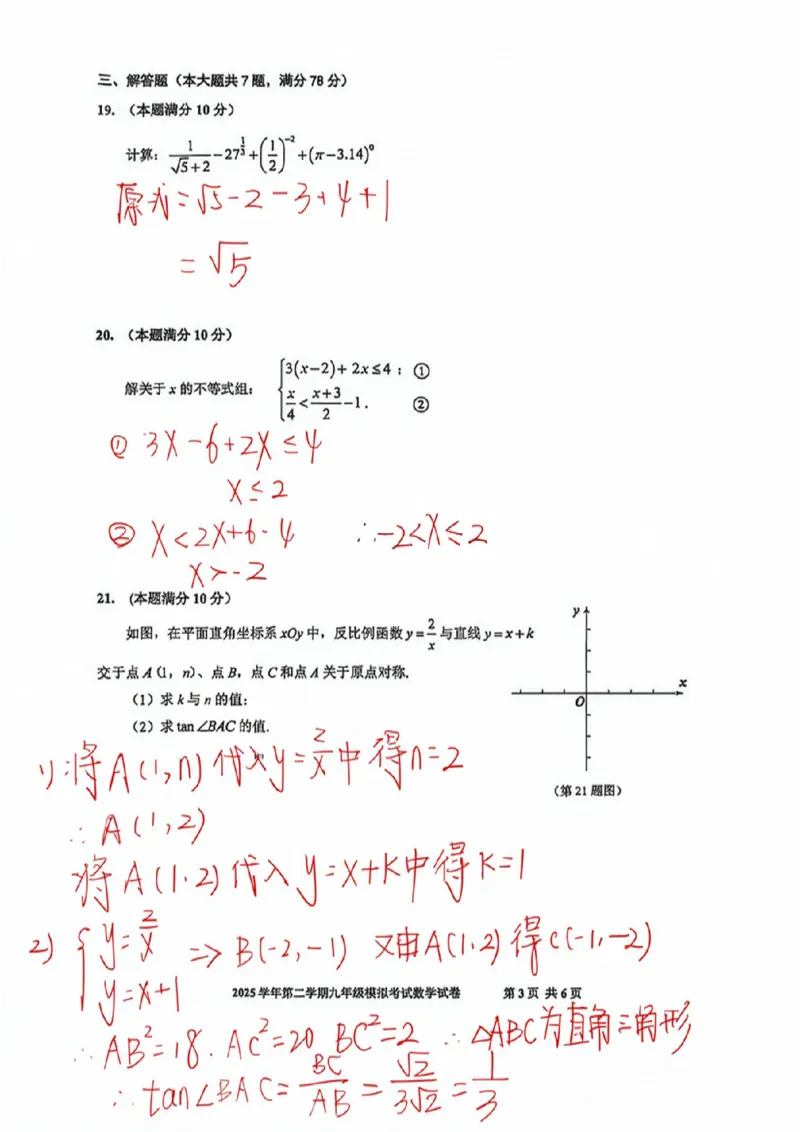 三、解答题（本大题共7题，满分78分）
19. （本题满分10分）
计算：1/(√5+2)-27^(1/3)+(1/2)^(-2)+(π-3.14)^0
原式=√5-2-3+4+1
=√5
20. （本题满分10分）
解关于x的不等式组：{3(x-2)+2x≤4；①
x/4<(x+3)/2-1. ②
① 3x-6+2x≤4
x≤2
② x<2x+6-4 ∴-2<x≤2
x>-2
21. （本题满分10分）
如图，在平面直角坐标系xOy中，反比例函数y=2/x与直线y=x+k
交于点A（1，n）、点B，点C和点A关于原点对称.
（1）求k与n的值；
（2）求tan∠BAC的值.
y
x
O
（第21题图）
1):将A(1,n)代入y=2/x中得n=2
∴A(1,2)
将A(1.2)代入y=x+k中得k=1
2) {y=2/x
y=x+1 => B(-2,-1) 又由A(1.2)得C(-1,-2)
2025学年第二学期九年级模拟考试数学试卷 第3页 共6页
∴AB²=18. AC²=20 BC²=2 ∴△ABC为直角三角形
∴tan∠BAC=BC/AB=√2/3√2=1/3